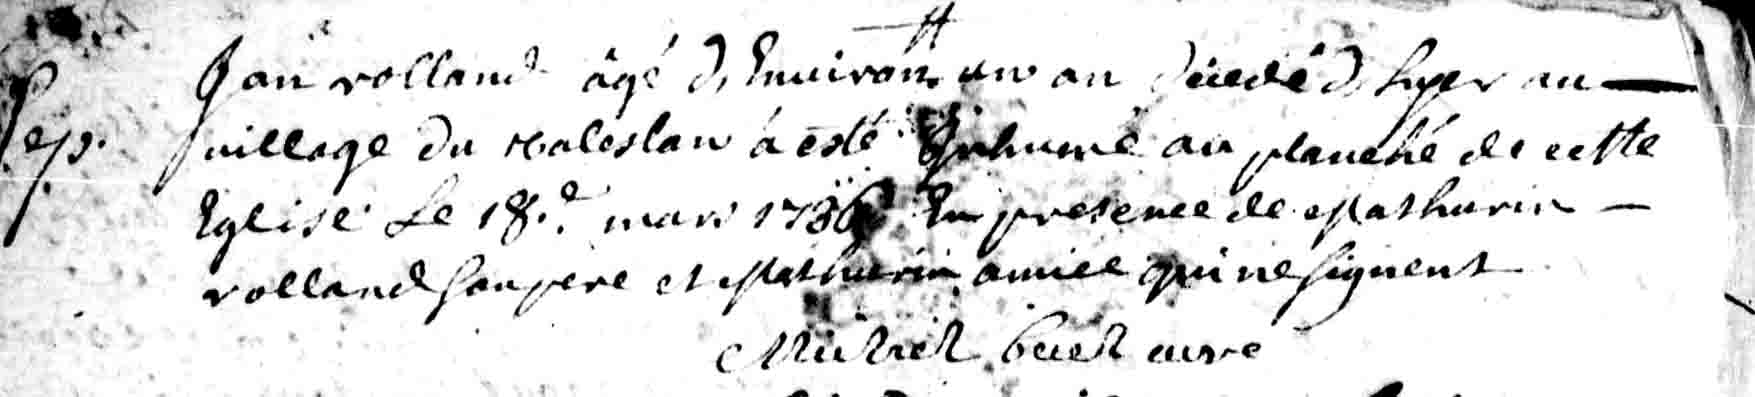 Sep.
Jan rolland âgé d'Environ un an décédé d'hyer au
village du valeslan à esté Inhumé au planché de cette
Eglise Le 18.e mars 1736 En presence de Mathurin
rolland son pere et Mathurin amice qui ne signent
Michel curé